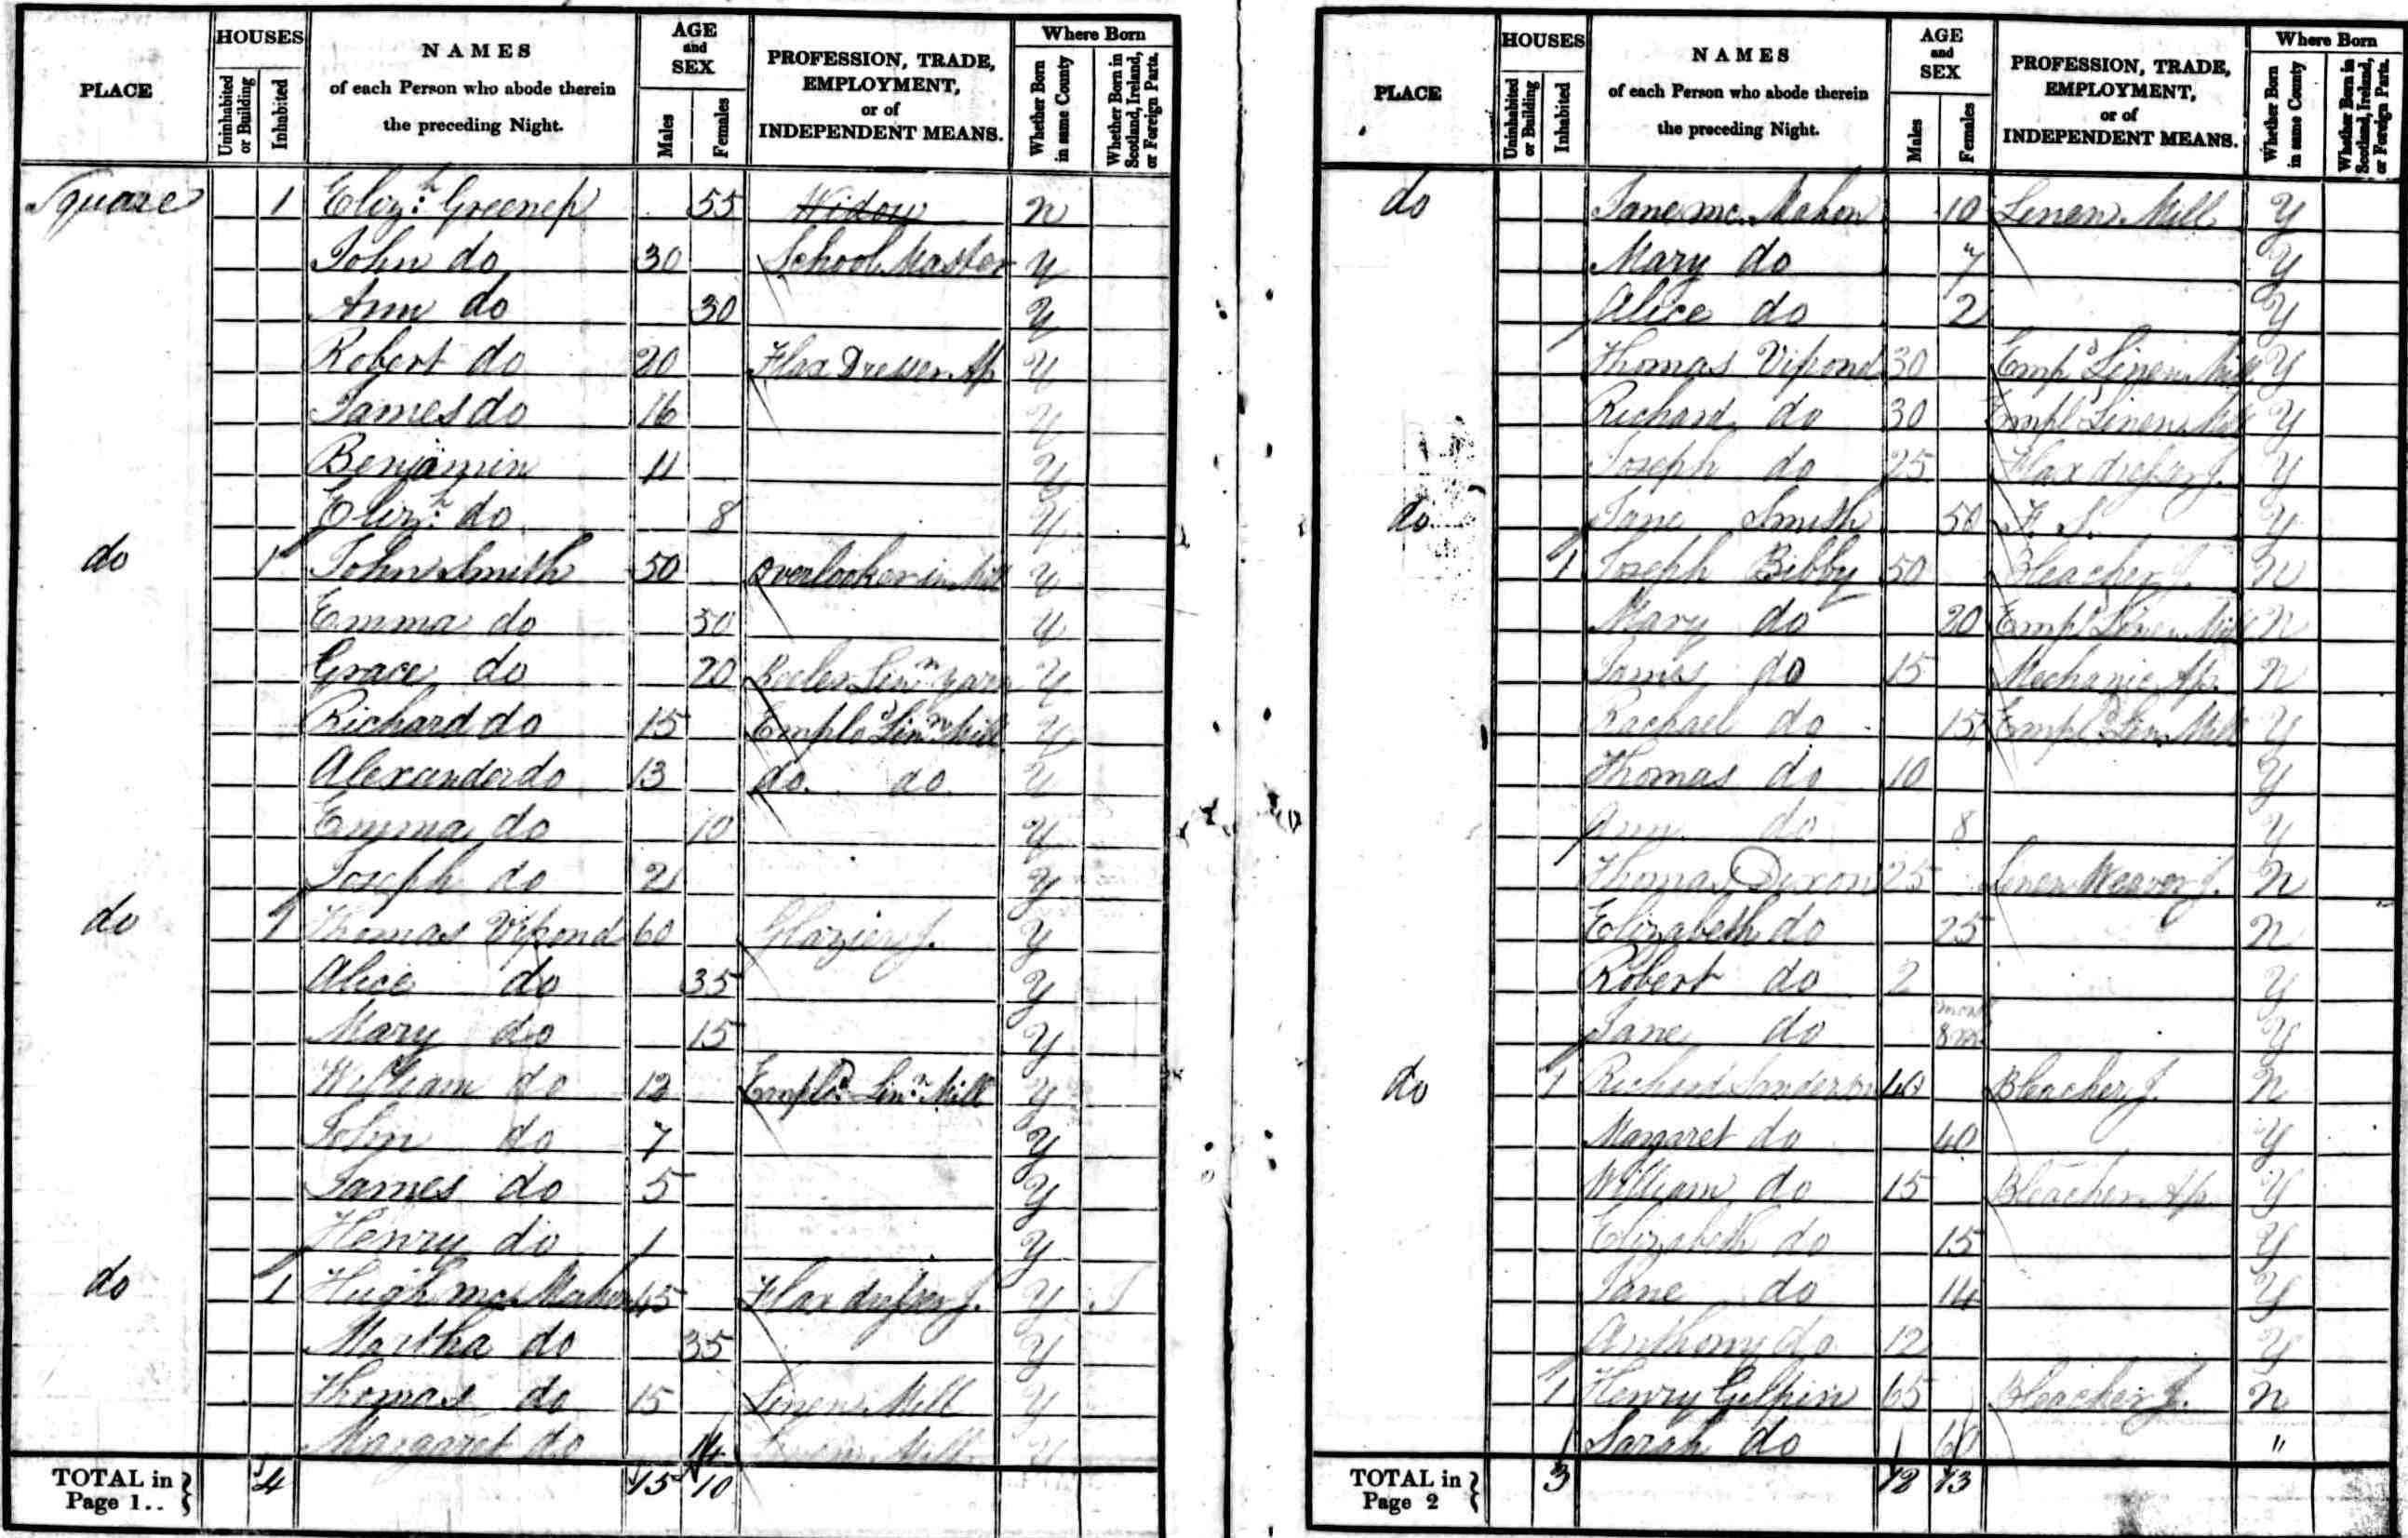 PLACE HOUSES Uninhabited or Building Inhabited NAMES of each Person who abode therein the preceding Night. AGE and SEX Males Females PROFESSION, TRADE, EMPLOYMENT, or of INDEPENDENT MEANS. Where Born Whether Born in same County Whether Born in Scotland, Ireland, or Foreign Parts.
Square 1 Elizh. Greenep 55 Widow N
John do 30 School Master Y
Ann do 30 Y
Robert do 20 Flax Dresser Ap Y
James do 16 Y
Benjamin 11 Y
Elizh. do 8 Y
do 1 John Smith 50 Overlooker in Mill Y
Emma do 50 Y
Grace do 20 Reeler Linn Yarn Y
Richard do 15 Emplod Linn Mill Y
Alexander do 13 do. do. Y
Emma do 10 Y
Joseph do 2 Y
do 1 Thomas Vipond 60 Glazier J. Y
Alice do 35 Y
Mary do 15 Y
William do 12 Empld. Linn. Mill Y
John do 7 Y
James do 5 Y
Henry do 1 Y
do 1 Hugh mac Mahon 45 Flax dresser J. Y I
Martha do 35 Y
Thomas do 15 Linen Mill Y
Margaret do 14 Linen Mill Y
TOTAL in Page 1.. 4 15 10
PLACE HOUSES Uninhabited or Building Inhabited NAMES of each Person who abode therein the preceding Night. AGE and SEX Males Females PROFESSION, TRADE, EMPLOYMENT, or of INDEPENDENT MEANS. Where Born Whether Born in same County Whether Born in Scotland, Ireland, or Foreign Parts.
do Jane mc. Mahon 10 Linen Mill Y
Mary do 7 Y
Alice do 2 Y
Thomas Vipond 30 Empd Linen Mill Y
Richard do 30 Empl Linen Mill Y
Joseph do 25 Flax dresser J. Y
do Jane Smith 50 F. S. Y
1 Joseph Bibby 50 Bleacher J. N
Mary do 20 Empld Linen Mill N
James do 15 Mechanic Ap. N
Rachael do 15 Empld Lin. Mill Y
Thomas do 10 Y
Ann do 8 Y
Thomas Dixon 25 Linen Weaver J. N
Elizabeth do 25 N
Robert do 2 Y
Jane do 8 mo Y
do 1 Richard Sanderson 40 Bleacher J. N
Margaret do 40 Y
William do 15 Bleacher Ap. Y
Elizabeth do 15 Y
Jane do 14 Y
Anthony do 12 Y
1 Henry Gilpin 65 Bleacher J. N
Sarah do 60 "
TOTAL in Page 2 3 12 13